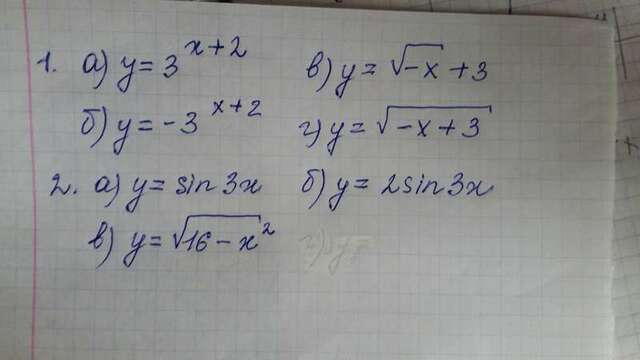 1. а) y = 3^{x+2} в) y = √(-x) + 3
б) y = -3^{x+2} г) y = √(-x+3)
2. а) y = sin 3x б) y = 2sin 3x
в) y = √(16 - x²) г) y=